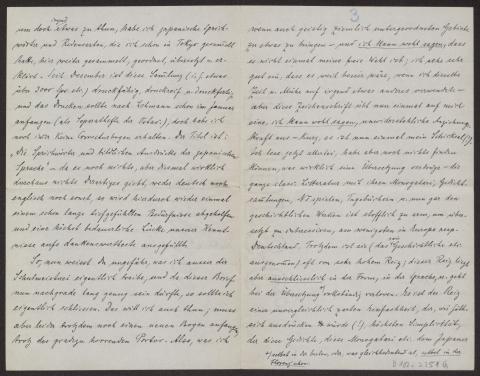 um doch irgend etwas zu thun, habe ich japanische Sprich-
wörter und Redensarten, die ich schon in Tokyo gesammelt
hatte, hier weiter gesammelt, geordnet, übersetzt u. er-
klärt. Seit December ist diese Samlung (i.g. etwas
über 3000 Spr. etc.) druckfähig, druckreif u. druckfertig,
und das Drucken sollte nach Lehmann schon im Januar
anfangen (als Supplheft der Ostas:), doch habe ich
noch immer keine Correcturbogen erhalten. Der Titel ist:
„Die Sprichwörter und bildlichen Ausdrücke der japanischen
Sprache" – da es noch nichts, aber diesmal wirklich
durchaus nichts Derartiges giebt, weder deutsch noch
englisch noch sonst, so wird hiedurch wieder einmal
einem schon lange tiefgefühlten Bedürfnisse abgeholfen
und eine höchst bedauerliche Lücke unserer Kennt-
nisse aufs dankenswertheste ausgefüllt.
So, nun weisst Du ungefähr, was ich ausser der
Schulmeisterei eigentlich treibe, und da dieser Brief
nun nachgrade lang genug sein dürfte, so sollte ich
eigentlich schliessen. Das will ich auch thun; muss
aber leider trotzdem noch einen neuen Bogen anfangen,
trotz des gradezu horrenden Portos. Also, was ich
3
wenn auch geistig ziemlich untergeordneten Gebiete
zu etwas zu bringen – und ich kann wohl sagen, dass
es nicht einmal meine freie Wahl ist; ich sehe sehr
gut ein, dass es weit besser wäre, wenn ich dieselbe
Zeit u. Mühe auf irgend etwas anderes verwendete –
aber diese Zeichenschrift übt nun einmal auf mich
eine, ich kann wohl sagen, unwiderstehliche Anziehungs-
kraft aus – kurz, es ist nun einmal mein Schicksal (?).
Ich lese jetzt allerlei, habe aber noch nichts finden
können, was wirklich eine Übersetzung vertrüge – die
ganze classi. Litteratur mit ihren Monogatari, Gedicht-
sammlungen, Nô spielen, Tagebüchern u. nun gar den
geschichtlichen Werken ist stofflich zu arm, um über-
setzt zu interessiren, am wenigsten in Europa resp.
Deutschland. Trotzdem ist es (das rein Geschichtliche etc.
ausgenommen) oft von sehr hohem Reiz; dieser Reiz liegt
aber ausschliesslich in der Form, in der Sprache, u. geht
bei der Übersetzung vollständig verloren. Es ist der Reiz
einer unvergleichlich zarten Einfachheit, der, wie Goethe
sich ausdrücken würde (!), höchsten Simplicität,
der diese Gedichte, diese Monogatari etc. dem Japaner
selbst in der